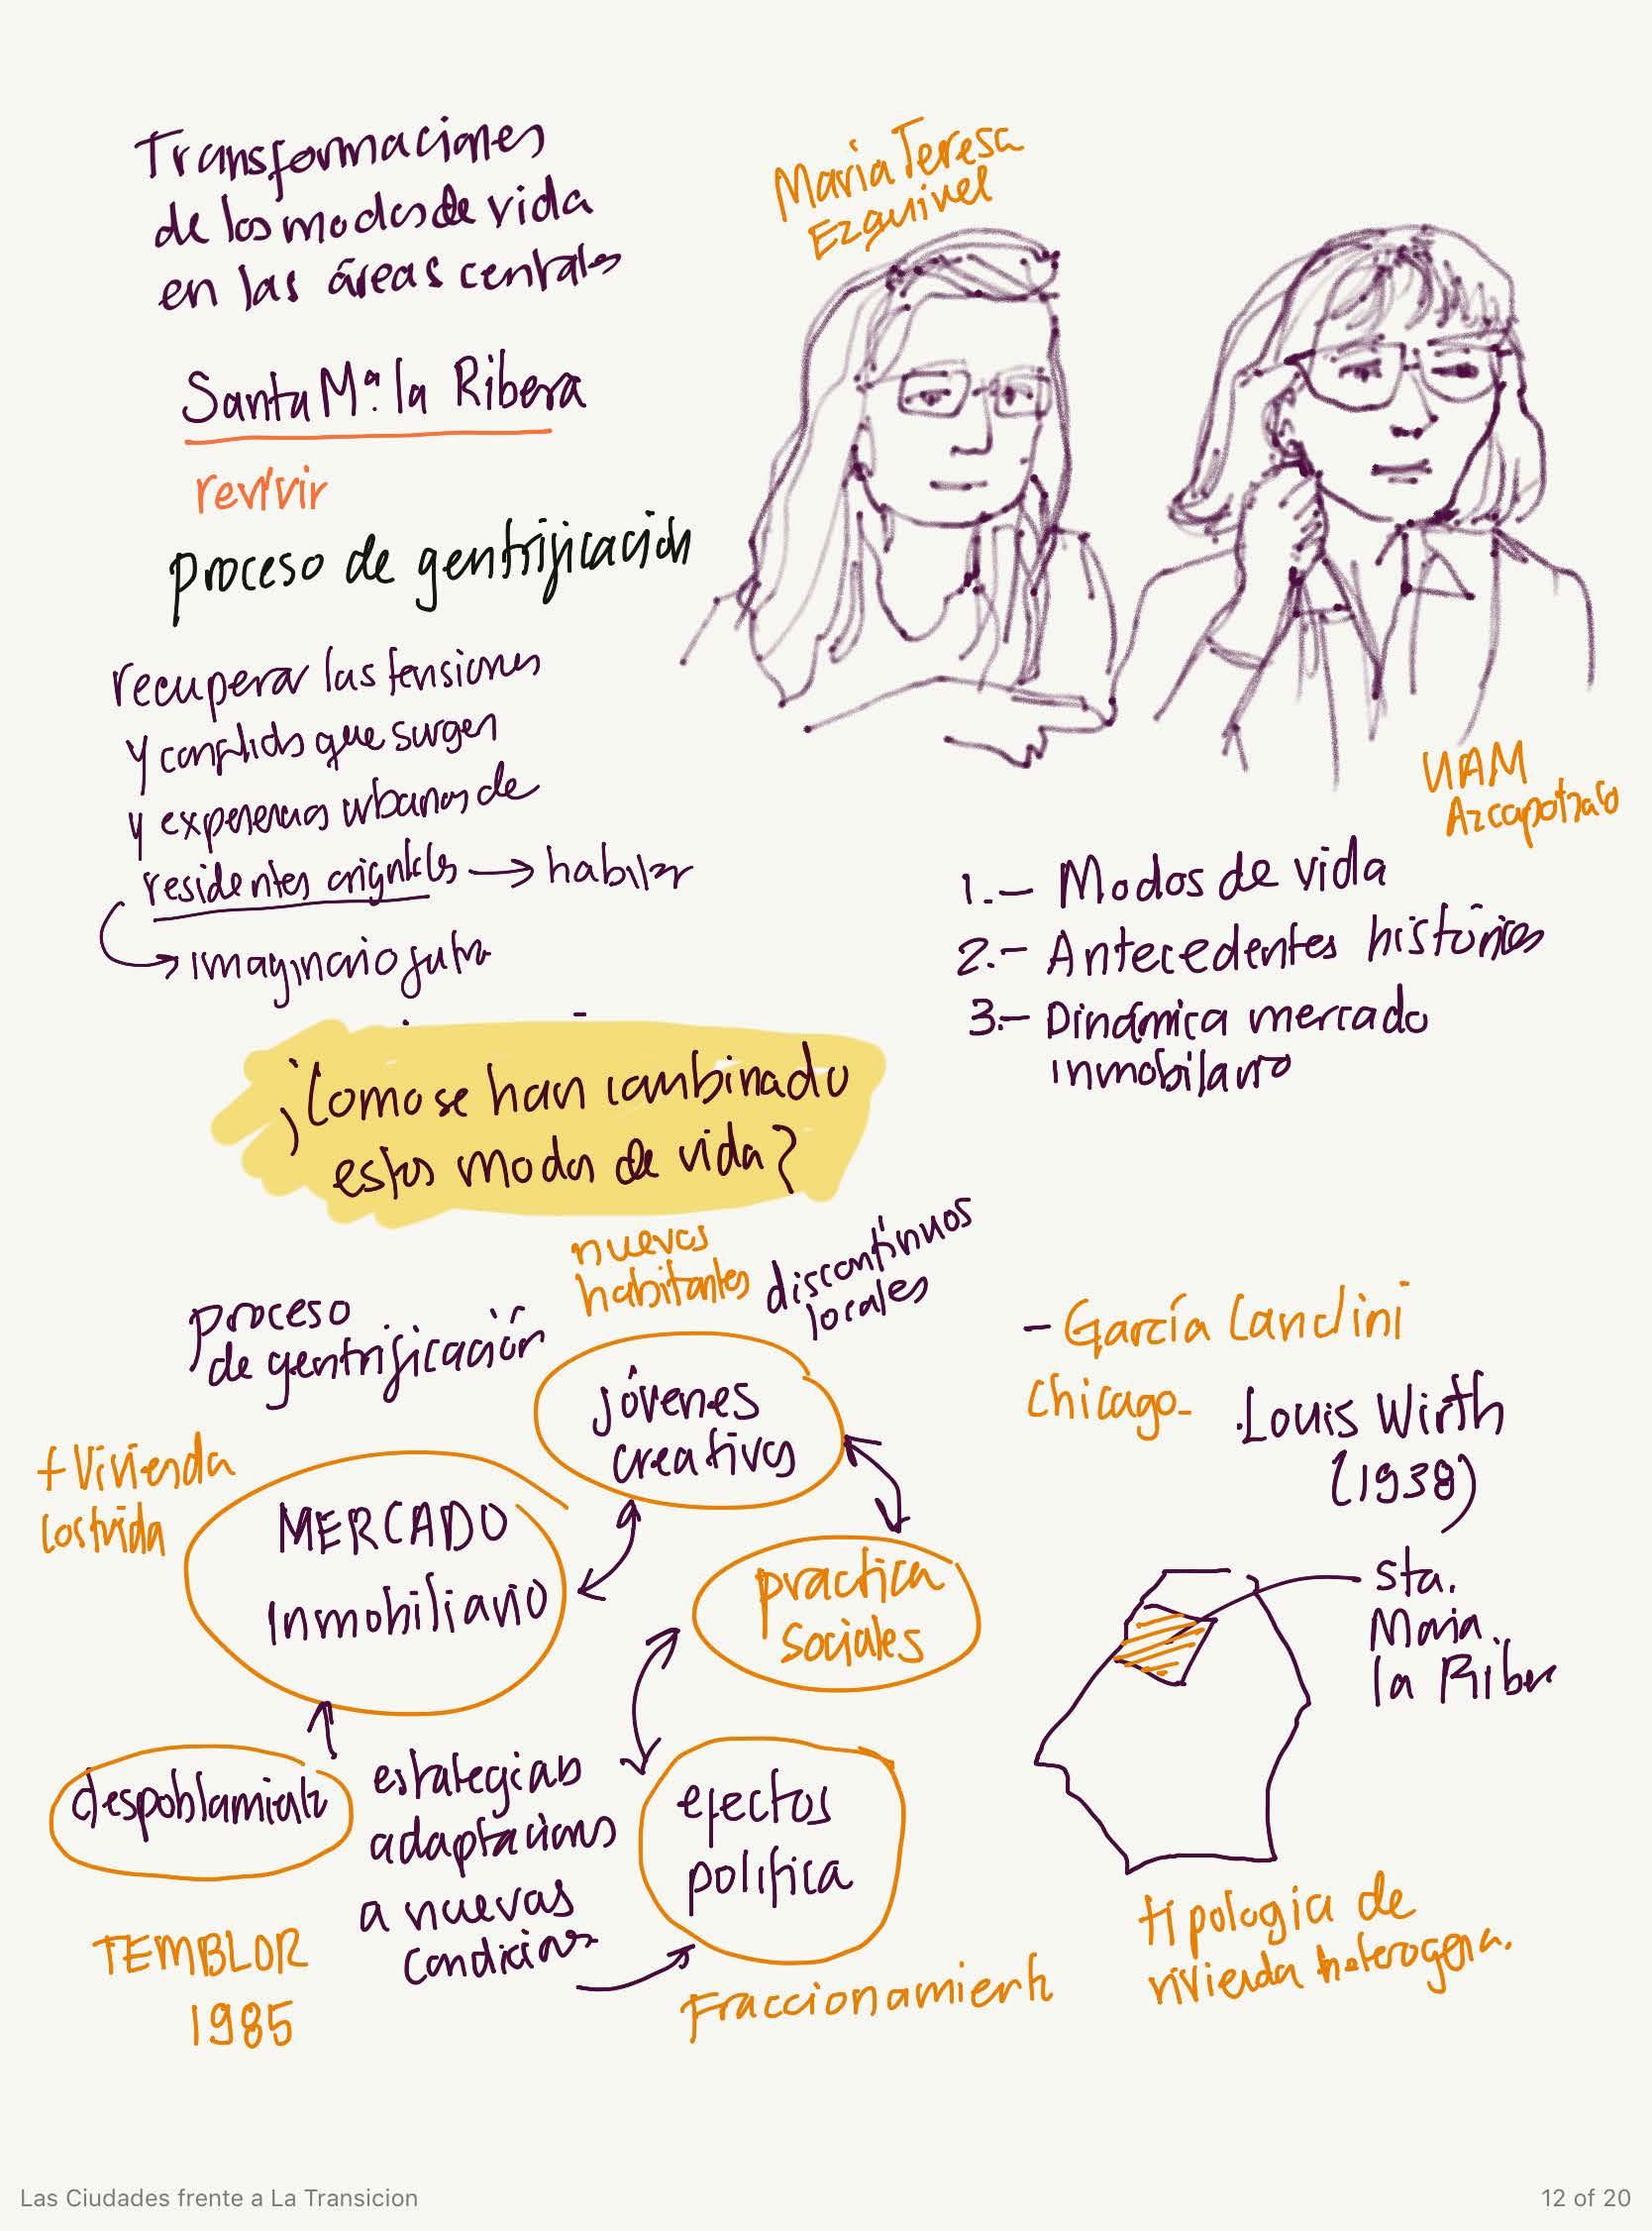 Transformaciones
de los modos de vida
en las áreas centrales
Santa Mª. la Ribera
revivir
proceso de gentrificación
recuperar las tensiones
y conflictos que surgen
y experiencias urbanas de
residentes originales → habitar
→ imaginario futuro
¿Como se han combinado
estos modos de vida?
Maria Teresa
Ezquivel
UAM
Azcapotzalco
1.- Modos de vida
2.- Antecedentes históricos
3.- Dinámica mercado
inmobilario
proceso
de gentrificación
nuevos
habitantes
discontinuos
locales
jóvenes
creativos
+ Vivienda
MERCADO
Inmobiliario
practica
sociales
despoblamiento
estrategias
adaptacions
a nuevas
condicions
efectos
politica
TEMBLOR
1985
Fraccionamiento
- García Canclini
Chicago- .Louis Wirth
(1938)
sta.
Maria
la Riber
tipologia de
vivienda heterogena.
Las Ciudades frente a La Transicion
12 of 20